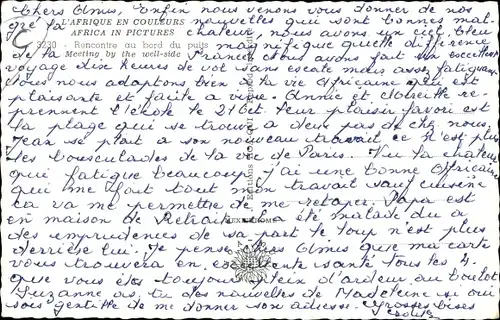 Chers Amis, Enfin nous venons vous donner de nos
L'AFRIQUE EN COULEURS
nouvelles qui sont bonnes mal-
AFRICA IN PICTURES
gré la chaleur, nous avons un ciel bleu
3230 - Rencontre au bord du puits
magnifique quelle différence
Meeting by the well-side
de la France nous avons fait un excellent
voyage dix heures de vol sans escale mais assez fatiguant
nous nous adaptons bien à la vie Africaine qui est
plaisante et facile a vivre. Annie et Mireille re-
prennent l'école le 21 Oct. leur plaisir favori est
la plage qui se trouve a deux pas de chez nous.
Jean se plait a son nouveau travail ce n'est plus
les bousculades de la vie de Paris. Vu la chaleur
qui fatigue beaucoup j'ai une bonne Africaine
qui me fait tout mon travail sauf cuisine
ca va me permettre de me retaper. Papa est
en maison de Retraite il a été malade du a
des imprudences de sa part le loup n'est plus
derrière lui. Je pense Chers Amis que ma carte
vous trouvera en excellente santé tous les 4.
que vous êtes toujours plein d'ardeur au boulot
Suzanne as, tu des nouvelles de Madeleine si oui
sois gentille de me donner son adresse. Grosses bises